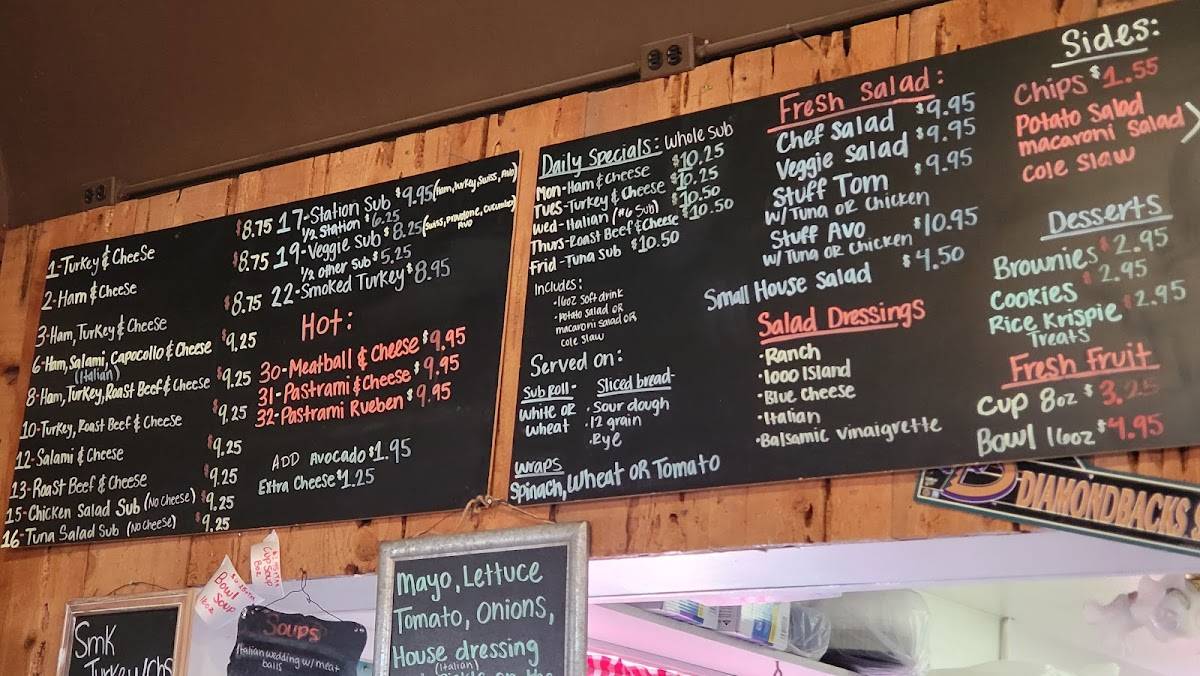 1-Turkey & Cheese $8.75
2-Ham & Cheese $8.75
3-Ham, Turkey & Cheese $8.75
6-Ham, Salami, Capocollo & Cheese $9.25
(Italian)
8-Ham, Turkey, Roast Beef & Cheese $9.25
10-Turkey, Roast Beef & Cheese $9.25
12-Salami & Cheese $9.25
13-Roast Beef & Cheese $9.25
15-Chicken Salad Sub (No Cheese) $9.25
16-Tuna Salad Sub (No Cheese) $9.25
17-Station Sub $9.95 (Ham, Turkey, Swiss, Avo)
1/2 Station $6.25
19-Veggie Sub $8.25 (Swiss, Provolone, Cucumber)
Avo
1/2 other Sub $5.25
22-Smoked Turkey $8.95
Hot:
30-Meatball & Cheese $9.95
31-Pastrami & Cheese $9.95
32-Pastrami Rueben $9.95
ADD Avocado $1.95
Extra Cheese $1.25
Daily Specials: Whole Sub
Mon-Ham & Cheese $10.25
Tues-Turkey & Cheese $10.25
Wed-Italian (#6 Sub) $10.50
Thurs-Roast Beef & Cheese $10.50
Frid-Tuna Sub $10.50
Includes:
·16oz Soft drink
·Potato Salad OR
macaroni salad OR
Cole Slaw
Served on:
Sub Roll-
White OR
Wheat
Sliced bread-
·Sour dough
·12 grain
·Rye
Wraps
Spinach, Wheat OR Tomato
Fresh Salad:
Chef Salad $9.95
Veggie Salad $9.95
Stuff Tom $9.95
W/ Tuna OR Chicken
Stuff Avo $10.95
W/ Tuna OR Chicken
Small House Salad $4.50
Salad Dressings
·Ranch
·1000 Island
·Blue Cheese
·Italian
·Balsamic Vinaigrette
Sides:
Chips $1.55
Potato Salad
macaroni Salad
Cole Slaw
Desserts
Brownies $2.95
Cookies $2.95
Rice Krispie $2.95
Treats
Fresh Fruit
Cup 8oz $3.25
Bowl 16oz $4.95
DIAMONDBACKS
Cup Soup
8oz
Bowl
Soup
16oz
Smk
Turkey
Soups
Italian wedding w/ meat
balls
Mayo, Lettuce
Tomato, Onions,
House dressing
(Italian)